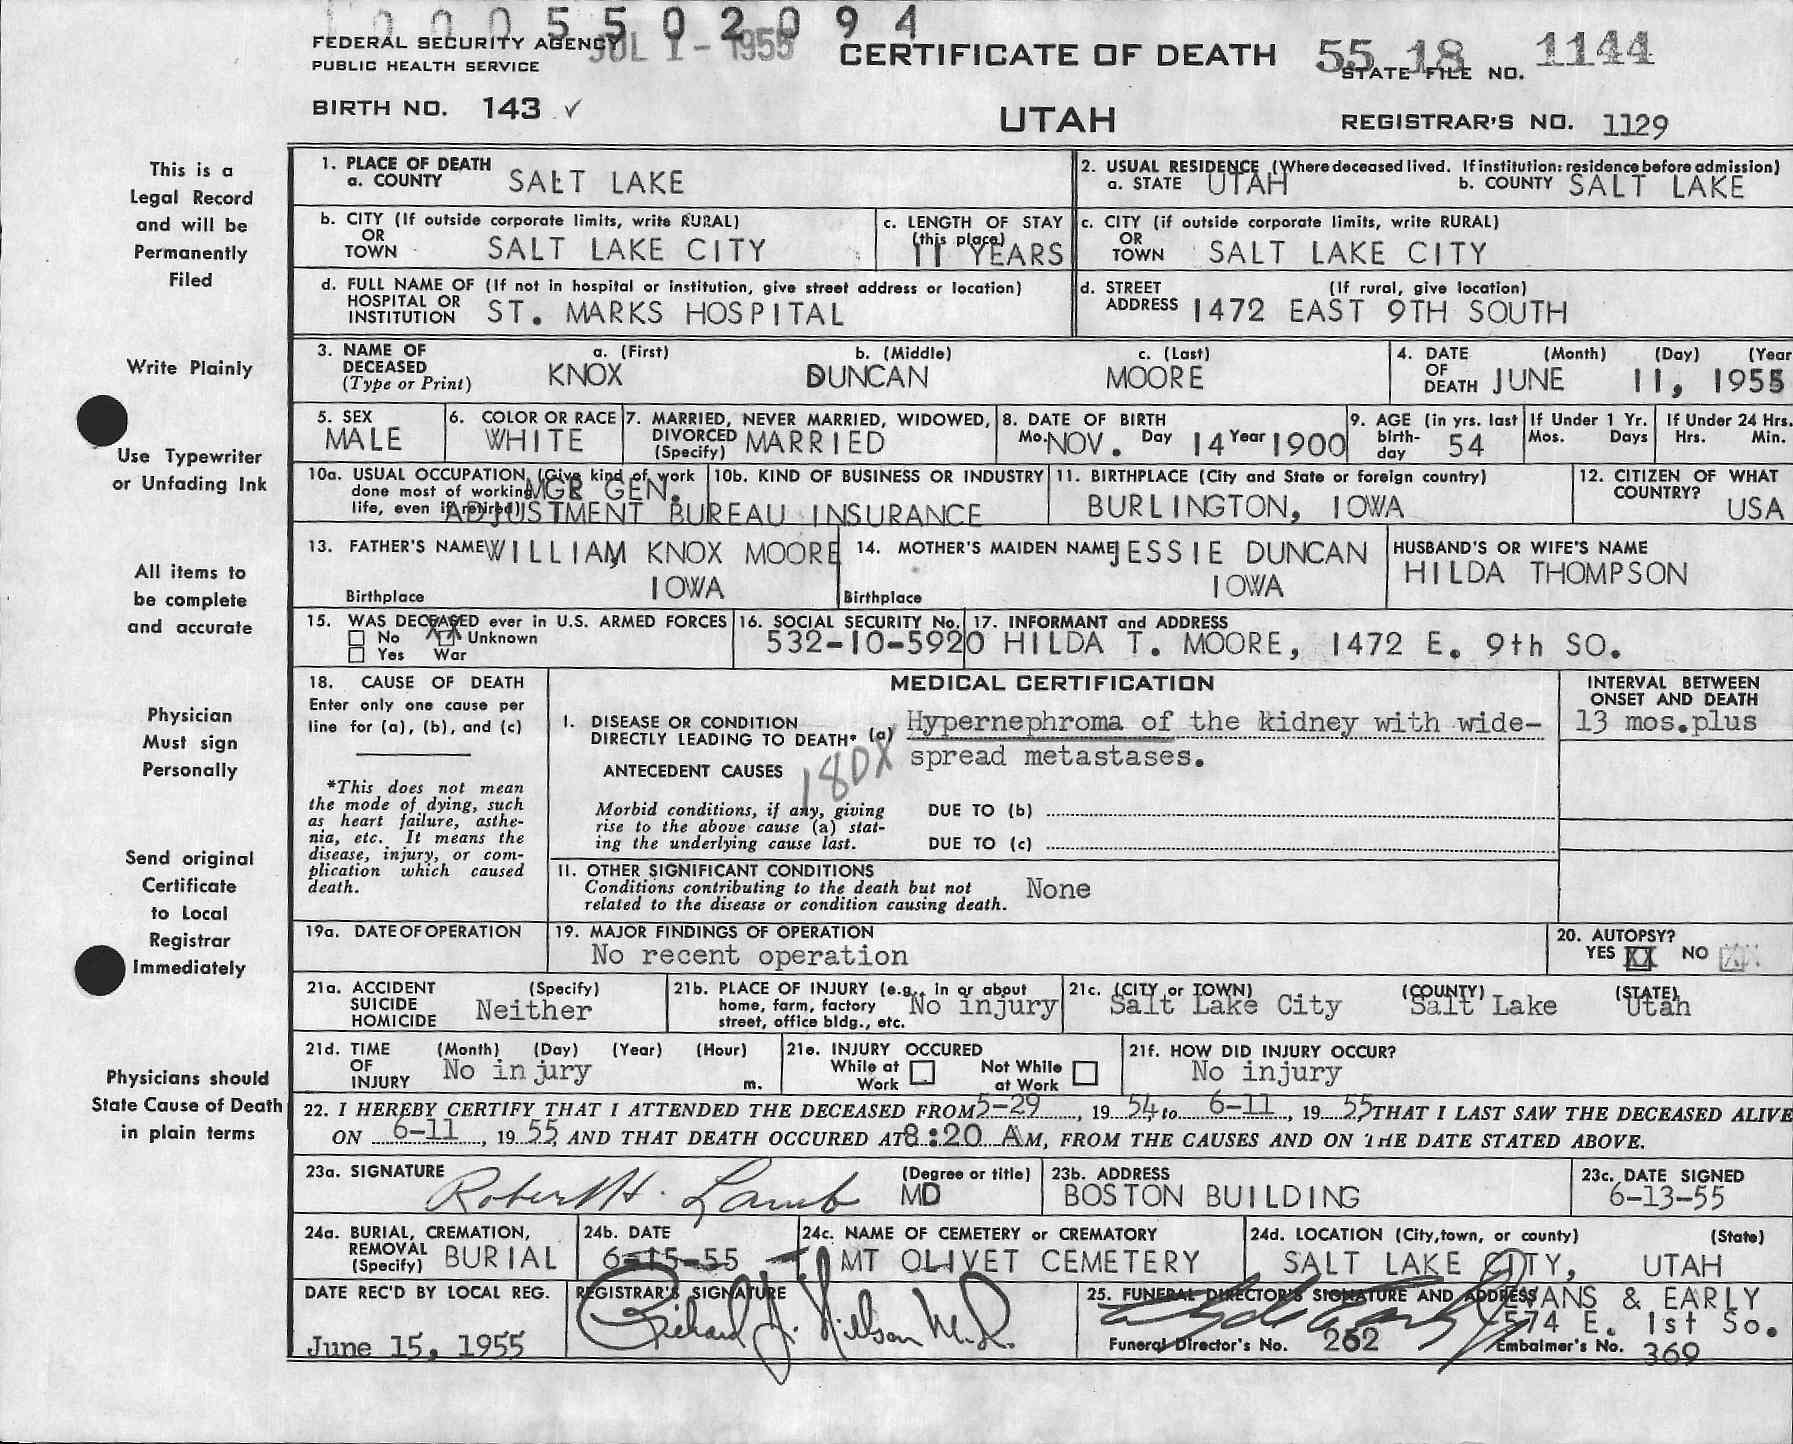 0005502094
FEDERAL SECURITY AGENCY
JUL 1 - 1955
PUBLIC HEALTH SERVICE
CERTIFICATE OF DEATH
55 18 1144
STATE FILE NO.
BIRTH NO. 143 ✓
UTAH
REGISTRAR'S NO. 1129
This is a
Legal Record
and will be
Permanently
Filed
Write Plainly
Use Typewriter
or Unfading Ink
All items to
be complete
and accurate
Physician
Must sign
Personally
Send original
Certificate
to Local
Registrar
Immediately
Physicians should
State Cause of Death
in plain terms
1. PLACE OF DEATH
a. COUNTY SALT LAKE
2. USUAL RESIDENCE (Where deceased lived. If institution: residence before admission)
a. STATE UTAH b. COUNTY SALT LAKE
b. CITY (If outside corporate limits, write RURAL)
OR
TOWN SALT LAKE CITY
c. LENGTH OF STAY
(this place)
11 YEARS
c. CITY (if outside corporate limits, write RURAL)
OR
TOWN SALT LAKE CITY
d. FULL NAME OF (If not in hospital or institution, give street address or location)
HOSPITAL OR
INSTITUTION ST. MARKS HOSPITAL
d. STREET (If rural, give location)
ADDRESS 1472 EAST 9TH SOUTH
3. NAME OF a. (First) b. (Middle) c. (Last)
DECEASED
(Type or Print) KNOX DUNCAN MOORE
4. DATE (Month) (Day) (Year
OF
DEATH JUNE 11, 1955
5. SEX
MALE
6. COLOR OR RACE
WHITE
7. MARRIED, NEVER MARRIED, WIDOWED,
DIVORCED MARRIED
(Specify)
8. DATE OF BIRTH
Mo. NOV. Day 14 Year 1900
9. AGE (in yrs. last
birth-
day 54
If Under 1 Yr.
Mos. Days
If Under 24 Hrs.
Hrs. Min.
10a. USUAL OCCUPATION (Give kind of work
done most of working MGR GEN.
life, even if retired) ADJUSTMENT BUREAU INSURANCE
10b. KIND OF BUSINESS OR INDUSTRY
11. BIRTHPLACE (City and State or foreign country)
BURLINGTON, IOWA
12. CITIZEN OF WHAT
COUNTRY?
USA
13. FATHER'S NAME WILLIAM KNOX MOORE
Birthplace IOWA
14. MOTHER'S MAIDEN NAME JESSIE DUNCAN
Birthplace IOWA
HUSBAND'S OR WIFE'S NAME
HILDA THOMPSON
15. WAS DECEASED ever in U.S. ARMED FORCES
No XX Unknown
Yes War
16. SOCIAL SECURITY No.
532-10-5920
17. INFORMANT and ADDRESS
HILDA T. MOORE, 1472 E. 9th SO.
18. CAUSE OF DEATH
Enter only one cause per
line for (a), (b), and (c)
*This does not mean
the mode of dying, such
as heart failure, asthe-
nia, etc. It means the
disease, injury, or com-
plication which caused
death.
MEDICAL CERTIFICATION
INTERVAL BETWEEN
ONSET AND DEATH
I. DISEASE OR CONDITION
DIRECTLY LEADING TO DEATH* (a) Hypernephroma of the kidney with wide-
spread metastases.
13 mos.plus
180X
ANTECEDENT CAUSES
Morbid conditions, if any, giving
rise to the above cause (a) stat-
ing the underlying cause last.
DUE TO (b)
DUE TO (c)
II. OTHER SIGNIFICANT CONDITIONS
Conditions contributing to the death but not
related to the disease or condition causing death.
None
19a. DATE OF OPERATION
19. MAJOR FINDINGS OF OPERATION
No recent operation
20. AUTOPSY?
YES XX NO XX
21a. ACCIDENT (Specify)
SUICIDE
HOMICIDE Neither
21b. PLACE OF INJURY (e.g., in or about
home, farm, factory
street, office bldg., etc. No injury
21c. (CITY or TOWN) (COUNTY) (STATE)
Salt Lake City Salt Lake Utah
21d. TIME (Month) (Day) (Year) (Hour)
OF
INJURY No injury m.
21e. INJURY OCCURED
While at Not While
Work at Work
21f. HOW DID INJURY OCCUR?
No injury
22. I HEREBY CERTIFY THAT I ATTENDED THE DECEASED FROM 5-29, 19 54 to 6-11, 19 55 THAT I LAST SAW THE DECEASED ALIVE
ON 6-11, 19 55, AND THAT DEATH OCCURED AT 8:20 AM, FROM THE CAUSES AND ON THE DATE STATED ABOVE.
23a. SIGNATURE (Degree or title)
Robert H. Lamb MD
23b. ADDRESS
BOSTON BUILDING
23c. DATE SIGNED
6-13-55
24a. BURIAL, CREMATION,
REMOVAL
(Specify) BURIAL
24b. DATE
6-15-55
24c. NAME OF CEMETERY or CREMATORY
MT OLIVET CEMETERY
24d. LOCATION (City, town, or county) (State)
SALT LAKE CITY, UTAH
DATE REC'D BY LOCAL REG.
June 15, 1955
REGISTRAR'S SIGNATURE
Richard J. Nilson M.D.
25. FUNERAL DIRECTOR'S SIGNATURE AND ADDRESS
EVANS & EARLY
574 E. 1st So.
Funeral Director's No. 262
Embalmer's No. 369